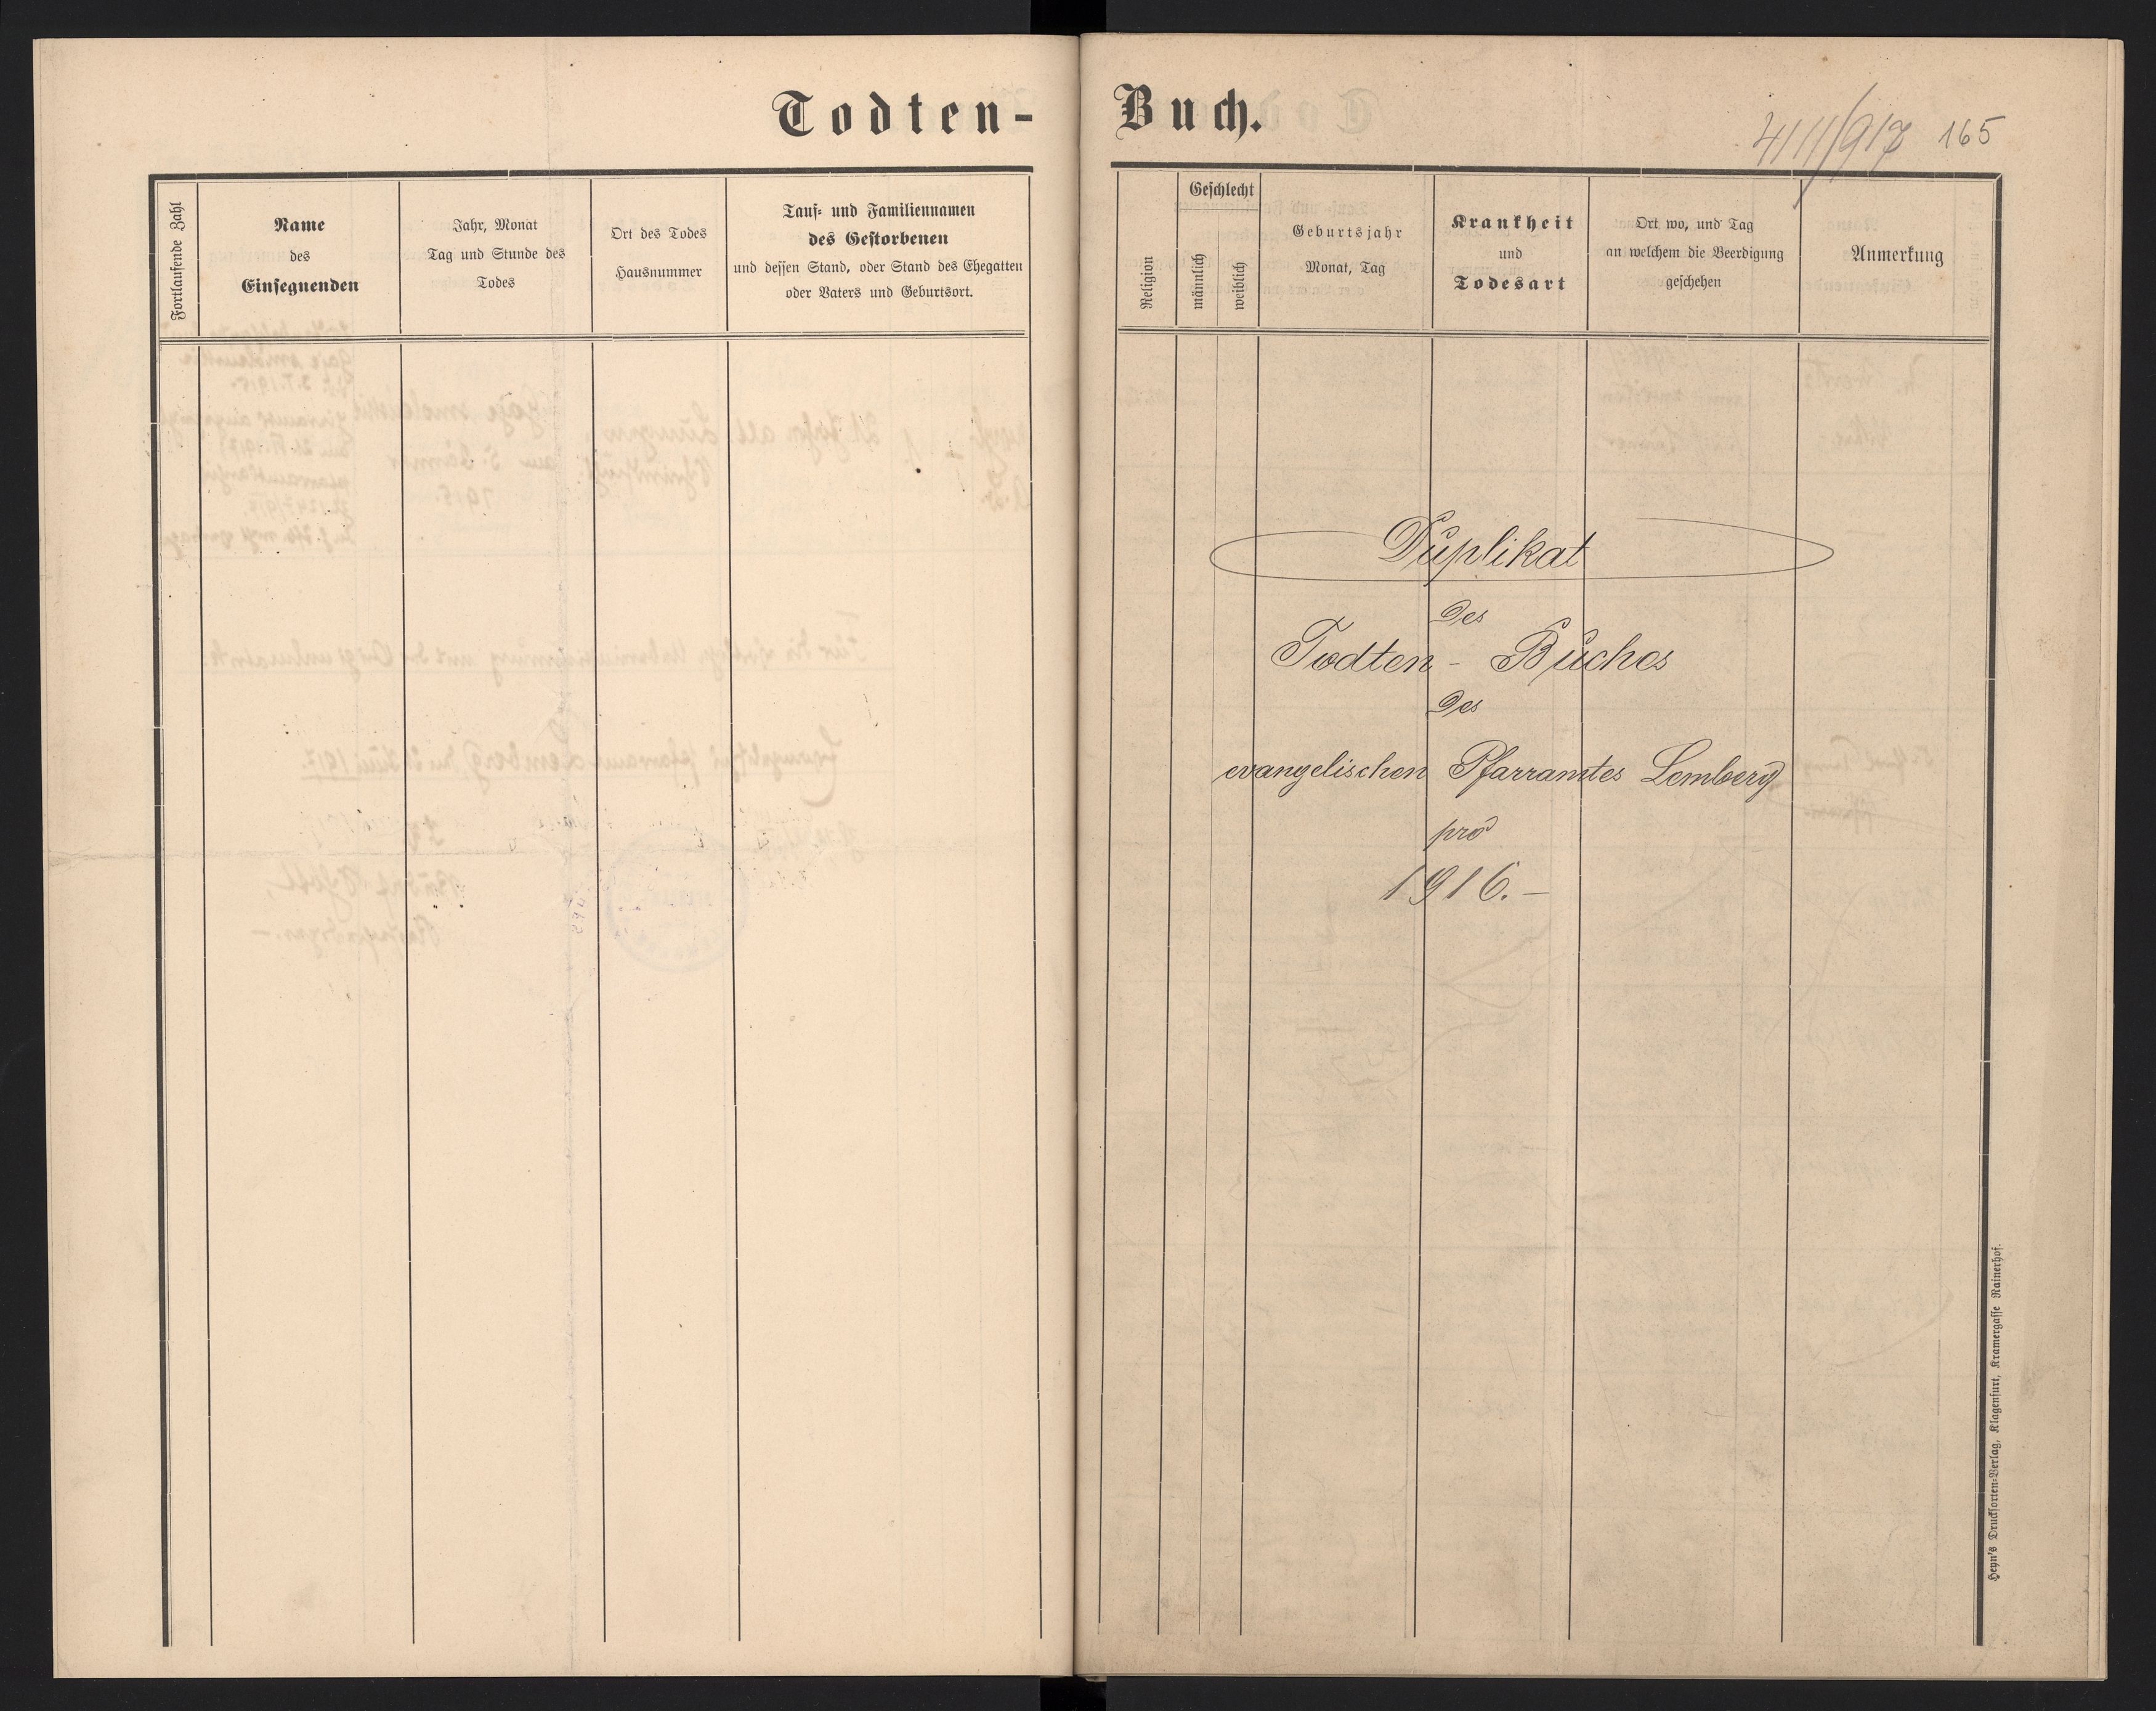 Todten-
Buch.
411/917 165
Fortlaufende Zahl
Name
des
Einsegnenden
Jahr, Monat
Tag und Stunde des
Todes
Ort des Todes
Hausnummer
Tauf- und Familiennamen
des Gestorbenen
und dessen Stand, oder Stand des Ehegatten
oder Vaters und Geburtsort.
Religion
Geschlecht
männlich
weiblich
Geburtsjahr
Monat, Tag
Krankheit
und
Todesart
Ort wo, und Tag
an welchem die Beerdigung
geschehen
Anmerkung
Duplikat
des
Todten - Buches
des
evangelischen Pfarramtes Lemberg
pro
1916.-
Heyn's Drucksorten-Verlag, Klagenfurt, Kramergasse Rainerhof.